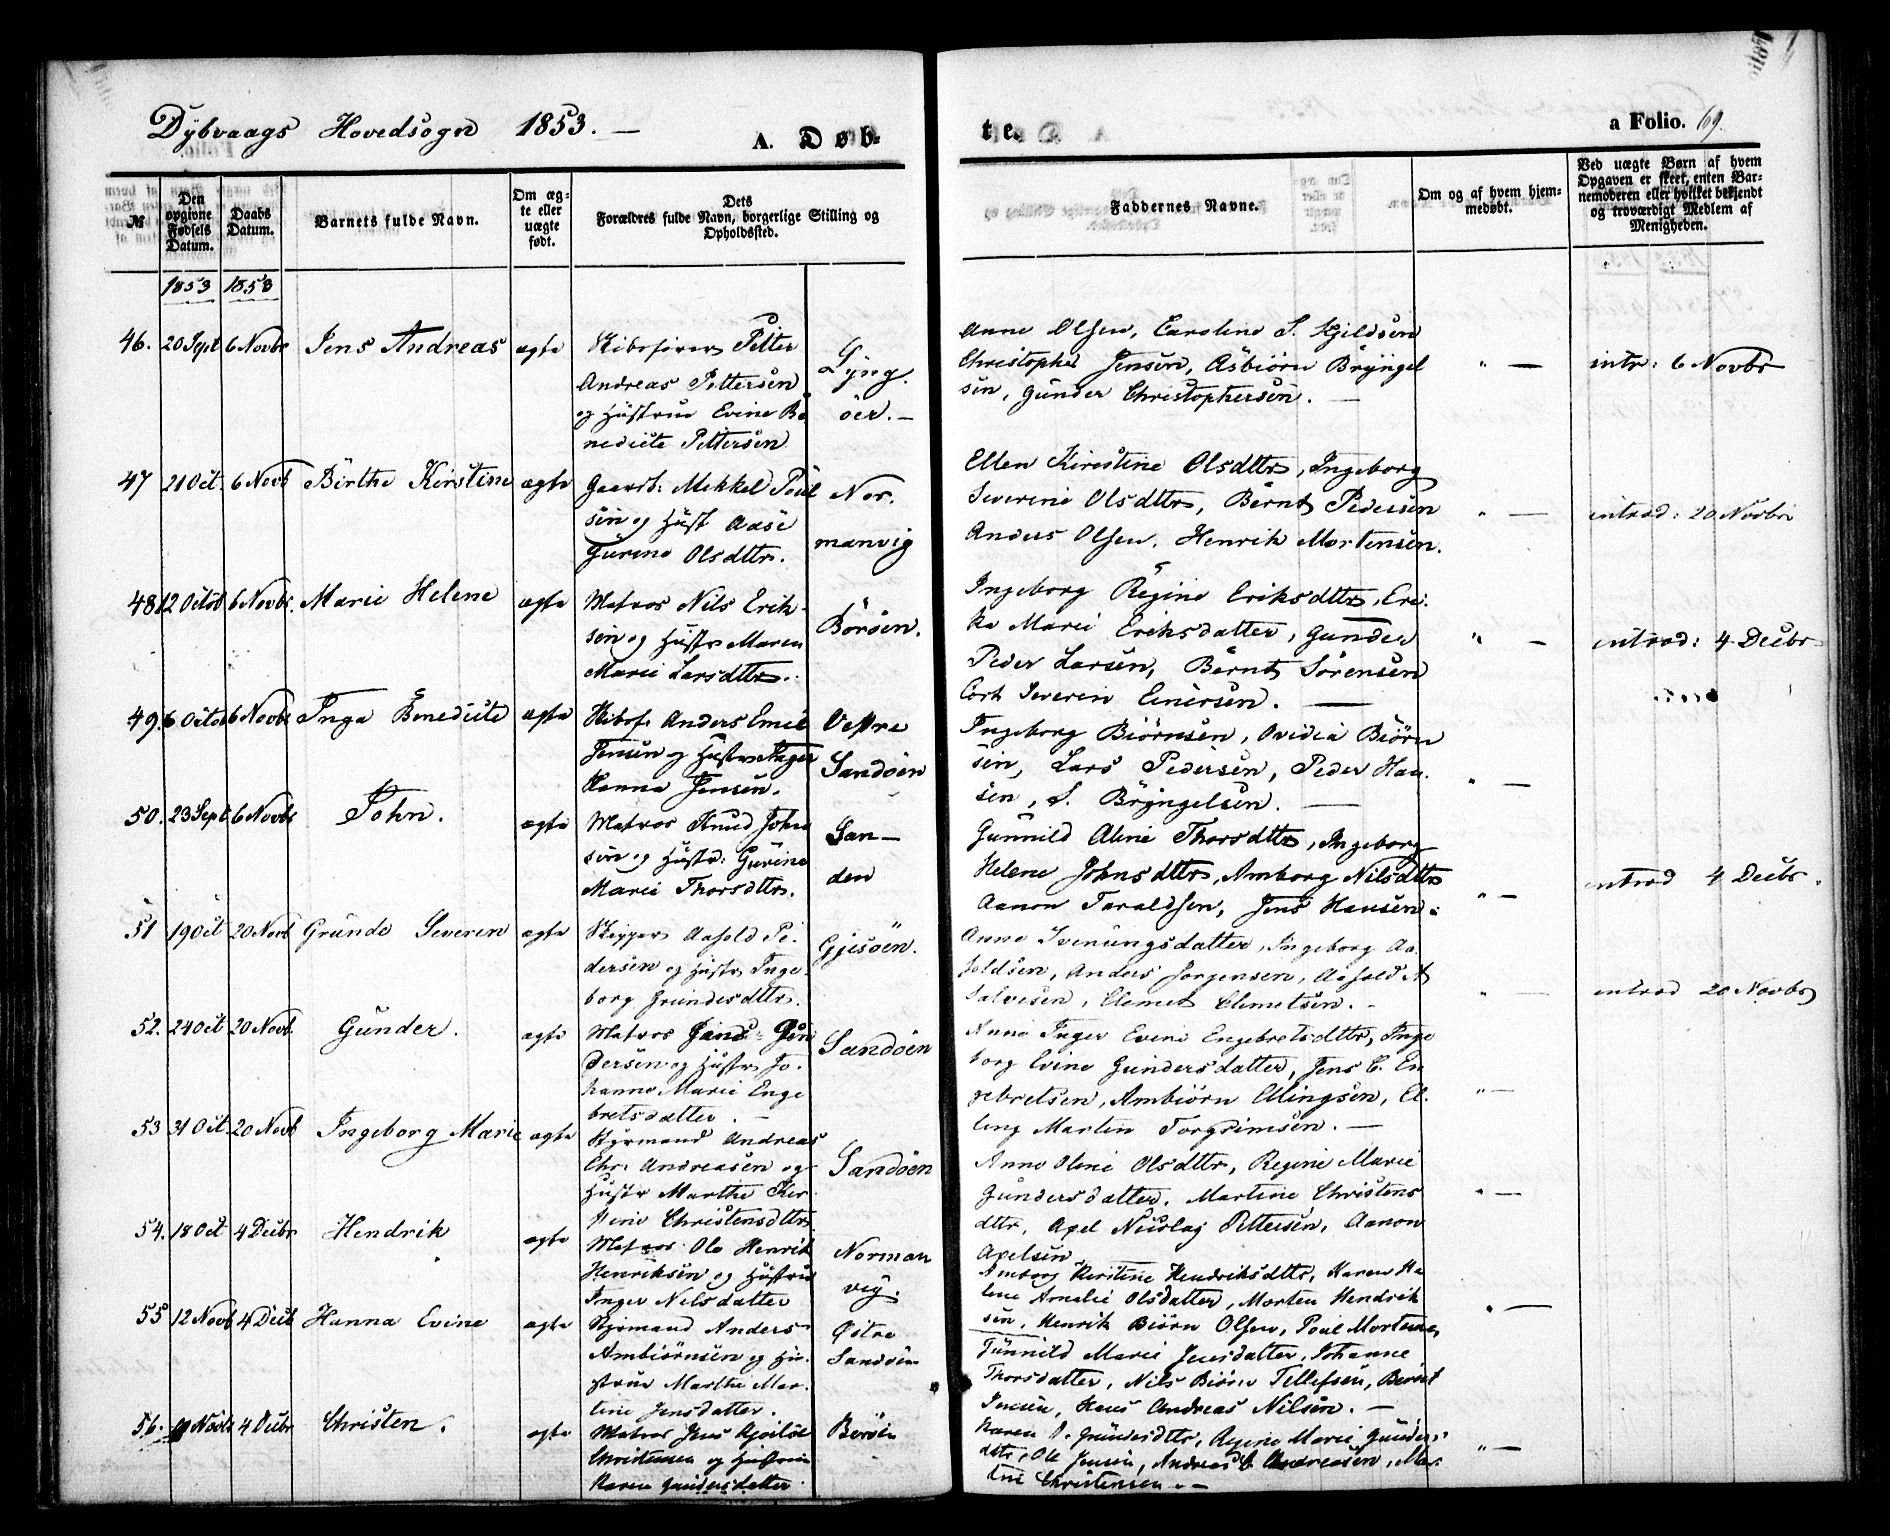 Dybvaags Hovedsogn 1853. —
A. Døb-
te.
a Folio. 69.
№
Den opgivne Fødsels Datum.
Daabs Datum.
Barnets fulde Navn.
Om ægte eller uægte født.
Dets Forældres fulde Navn, borgerlige Stilling og Opholdssted.
Faddernes Navne.
Om og af hvem hjemmedøbt.
Ved uægte Børn af hvem Opgaven er skeet, enten Barnemoderen eller hvilket bekjendt og troværdigt Medlem af Menigheden.
1853 1853
46. 20 Sept 6 Novbr Jens Andreas ægte
Petter
Andreas Pettersen
og Hustrue Evine Be
nedicte Pettersen
Lyng.
öer. —
Anne Olsen, Caroline S. Kjeldsen
Christopher Jensen, Asbiørn Bryngel
sen, Gunder Christophersen. —
" —
intr: 6 Novbr
47 21 Oct. 6 Novb Birthe Kirstine ægte
Gaardb: Mekkel Poul
sen og Hust Aase
Gurine Olsdttr.
Nor.
manvig
Ellen Kirestine Olsdttr, Ingeborg
Severine Olsdttr, Bernt Pedersen
Anders Olsen, Henrik Mortensen.
" —
introd: 20 Novbr
48 12 Octob 6 Novbr. Marie Helene ægte
Matros Nils Erik-
sen og Hustr Maren
Marie Larsdttr.
Böröen.
Ingeborg Regine Eriksdttr, Eri-
ke Marie Eriksdatter, Gunder
Peder Larsen, Bernt Sörensen
Cort Severin Einersen. —
" —
introd: 4 Decbr
49. 6 Octob 6 Novbr Inga Benedicte ægte
Kibsf. Anders Emil
Jensen og Hustru Inger
Hanna Jensen.
Vestre
Sandöen
Ingeborg Biörnsen, Ovidia Biörn
sen, Lars Pedersen, Peder Han-
sen, S. Bryngelsen. —
" —
50. 23 Sept 6 Novbr John. ægte
Matros Knud John
sen og Hustr: Gurine
Marie Thorsdttr.
San—
den
Gunnild Aline Thorsdttr, Ingeborg
Helene Johnsdttr, Amborg Nilsdttr
Aanon Taraldsen, Jens Hansen.
" —
introd 4 Decbr.
51 19 Oct 20 Novb Grunde Severin ægte
Skipper Aasold Pe-
dersen og Hustr Inge-
borg Grundesdttr.
Gjesöen.
Anne Iveningsdatter, Ingeborg Aa
soldsen, Anders Jorgensen, Aasold A
Salvesen, Clemet Clemetsen. -
" —
introd 20 Novbr
52. 24 Oct 20 Novb. Gunder. ægte
Matros Jens Gun
dersen og Hustr Jo-
hanne Marie Enge
bretsdatter. —
Sandöen
Anne Inger Evine Engebretsdttr, Inge
borg Evine Gundersdatter, Jens C. En
gebretsen, Ambiörn Ellingsen, El-
ling Martin Torgrimsen. —
" —
53 31 Oct. 20 Novb Ingeborg Marie ægte
Styrmand Andreas
Chr. Andreasen og
Hustr Marthe Kir
stine Christensdttr.
Sandöen
Anne Oline Olsdttr, Regine Marie
Gundersdatter, Martine Christens
dttr, Axel Nicolay Pettersen, Aanon
Axelsen
" —
54. 18 Oct 4 Decbr Hendrik ægte
Matros Ole Henrik
Henriksen og Hustrue
Inger Nilsdatter
Norman
vig.
Amborg Kirstine Hendriksdttr, Karen He
lene Amalie Olsdatter, Morten Hendrik
sen, Henrik Biörn Olsen, Poul Mortensen
" —
55 12 Novb 4 Decb Hanna Evine ægte
Styrmand Anders
Ambiörnsen og Hu-
strue Marthe Mar-
tine Jensdatter.
Østre
Sandöen
Gunnild Marie Jensdatter, Johanne
Thorsdatter, Nils Biörn Tellefsen, Berint
Jensen, Hans Andreas Nilsen. —
56. Novbr 4 Decbr Christen. ægte
Matros Jens
Christensen og Hustrue
Karen Gundersdatter
Böröen
Karen O. Grundesdttr, Regine Marie Gunders
dttr, Ole Jensen, Andreas C Andreasen, Mar
tin Christensen. —
" —